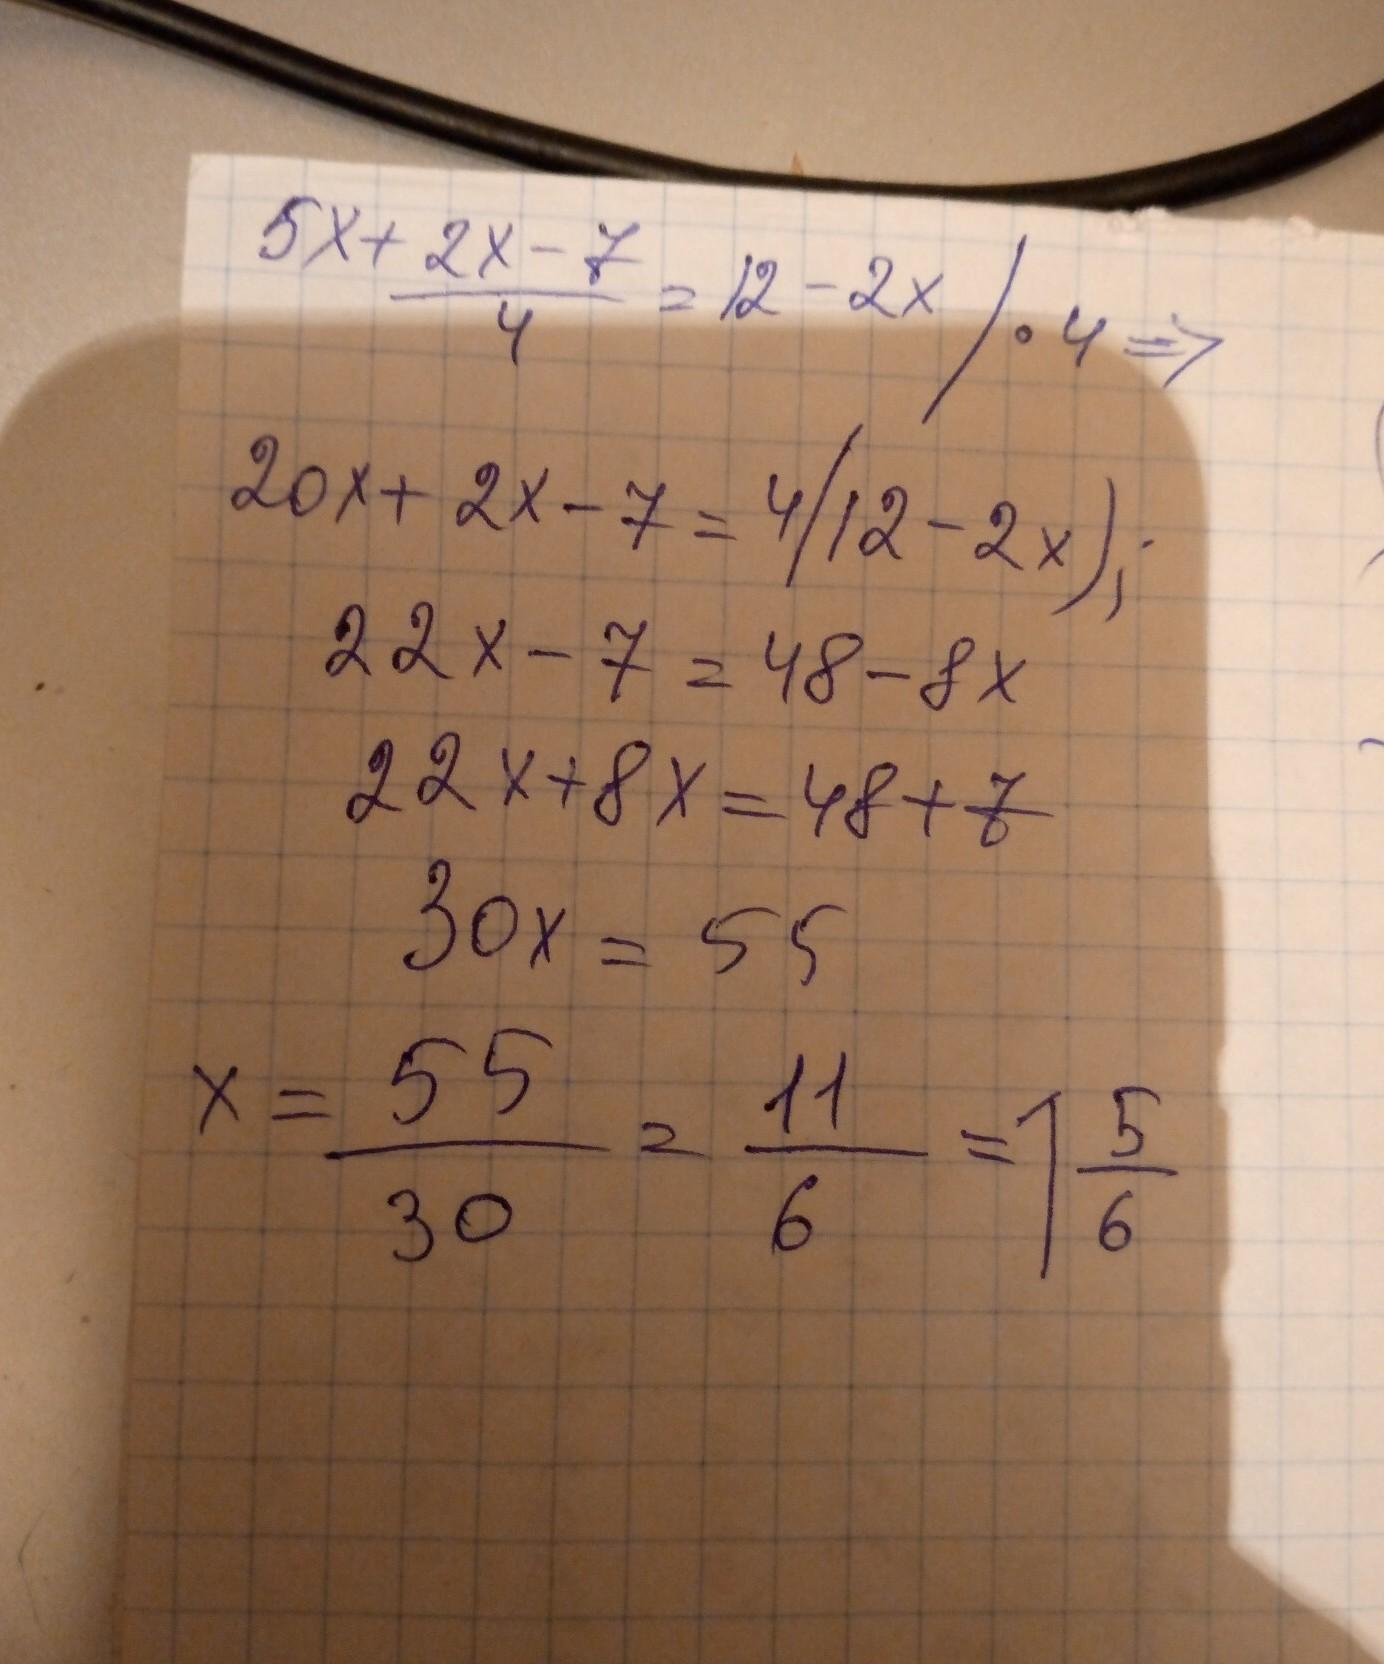 5x + (2x - 7)/4 = 12 - 2x / · 4 =>
20x + 2x - 7 = 4(12 - 2x);
22x - 7 = 48 - 8x
22x + 8x = 48 + 7
30x = 55
x = 55/30 = 11/6 = 1 5/6